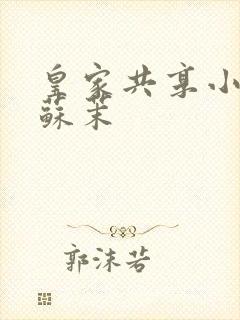 皇家共享小
蘇茉
郭沫若